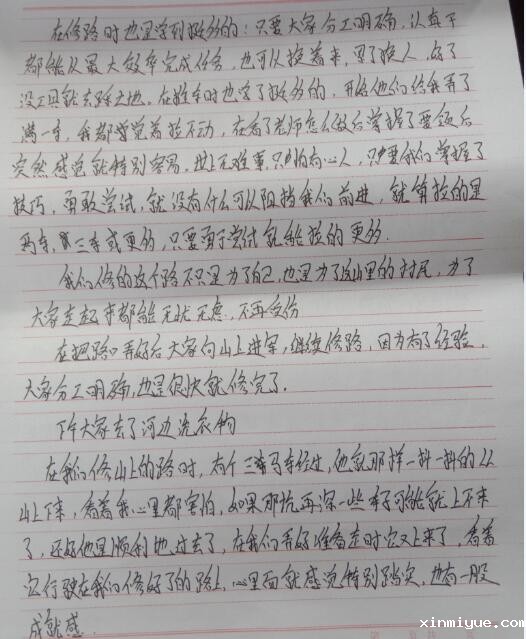 在修路时也是学到挺多的:只要大家分工明确,认真干
都能以最大效率完成任务,也可以换着来,累了换人,
没工具就去除土地。在推车时也学了挺多的,开始他们给我弄了
满一车,我都感觉着拉不动,在看了老师怎么做后掌握了要领后
突然感觉就特别容易,世上无难事,只怕有心人,只要我们掌握了
技巧,勇敢尝试,就没有什么可以阻挡我们前进,就算拉的是
两车,三车或更多,只要勇于尝试就能拉的更多.
我们修的这个路不只是为了自己,也是为了这山里的村民,为了
大家走起来都能无忧无虑,不再受伤
在把路口弄好后大家向山上进军,继续修路,因为有了经验,
大家分工明确,也是很快就修完了.
下午大家去了河边洗衣物
在我们修山上的路时,有个三轮马车经过,他就那样一抖一抖的从
山上下来,看着我心里都害怕,如果那坑再深一些车子可能就上不来
了,还好他是顺利地过去了,在我们弄好准备走时它又上来了,看着
它行驶在我们修好了的路上,心里面就感觉特别踏实,也有一股
成就感.
xinmiyue.com